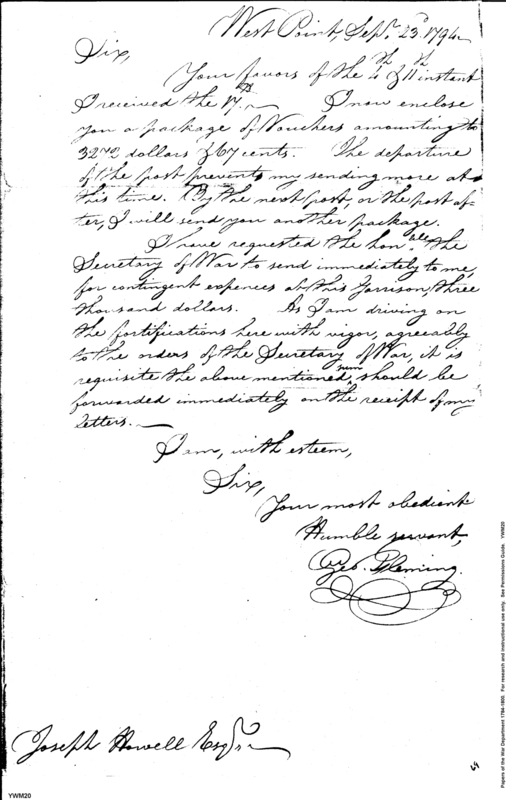 West Point, Sepr. 23d. 1794.
Sir,
Your favors of the 4th & 11th instant
I received the 17th. I now enclose
you a package of Vouchers amounting to
3272 dollars & 67 cents. The departure
of the post prevents my sending more at
this time. By the next post, or the post af-
ter, I will send you another package.
I have requested the honble. the
Secretary of War to send immediately to me,
for contingent expences at this Garrison, three
thousand dollars. As I am driving on
the fortifications here with vigor, agreeably
to the orders of the Secretary of War, it is
requisite the above mentioned sum, should be
forwarded immediately on the receipt of my
letters.
I am, with esteem,
Sir,
Your most obedient
Humble servant,
Geo. Fleming.
Joseph Howell Esqr.
YWM20
Papers of the War Department 1784-1800. For research and instructional use only. See Permissions Guide. YWM20